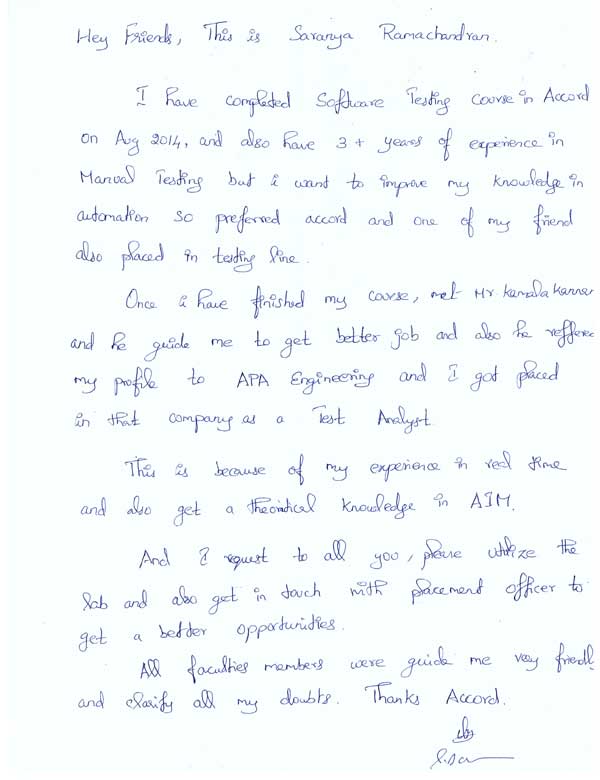 Hey Friends, This is Saranya Ramachandran.
I have completed Software Testing course in Accord
on Aug 2014, and also have 3+ years of experience in
Manual Testing but i want to improve my knowledge in
automation so preferred accord and one of my friend
also placed in testing line.
Once i have finished my course, met Mr. Kamala Kannan
and he guide me to get better job and also he reffered
my profile to APA Engineering and I got placed
in that company as a Test Analyst
This is because of my experience in real time
and also get a theoritical knowledge in AIM.
And I request to all you, please utilize the
lab and also get in touch with placement officer to
get a better opportunities.
All faculties members were guide me very friendl
and clarify all my doubts. Thanks Accord.